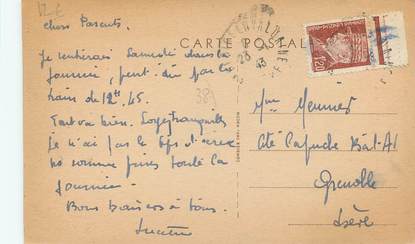 CARTE POSTALE
Chers Parents,
Je rentrerai Samedi dans la
journée, peut être par le
train de 12ʰ 45.
Tout va bien. Soyez tranquilles
Je n'ai pas le tps d'écrire
nous sommes pris toute la
journée.
Bons baisers à tous.
389
23
43
1ᶠ20
Mme Meunier
Cité Capuche Bat. A1
Grenoble
Isère